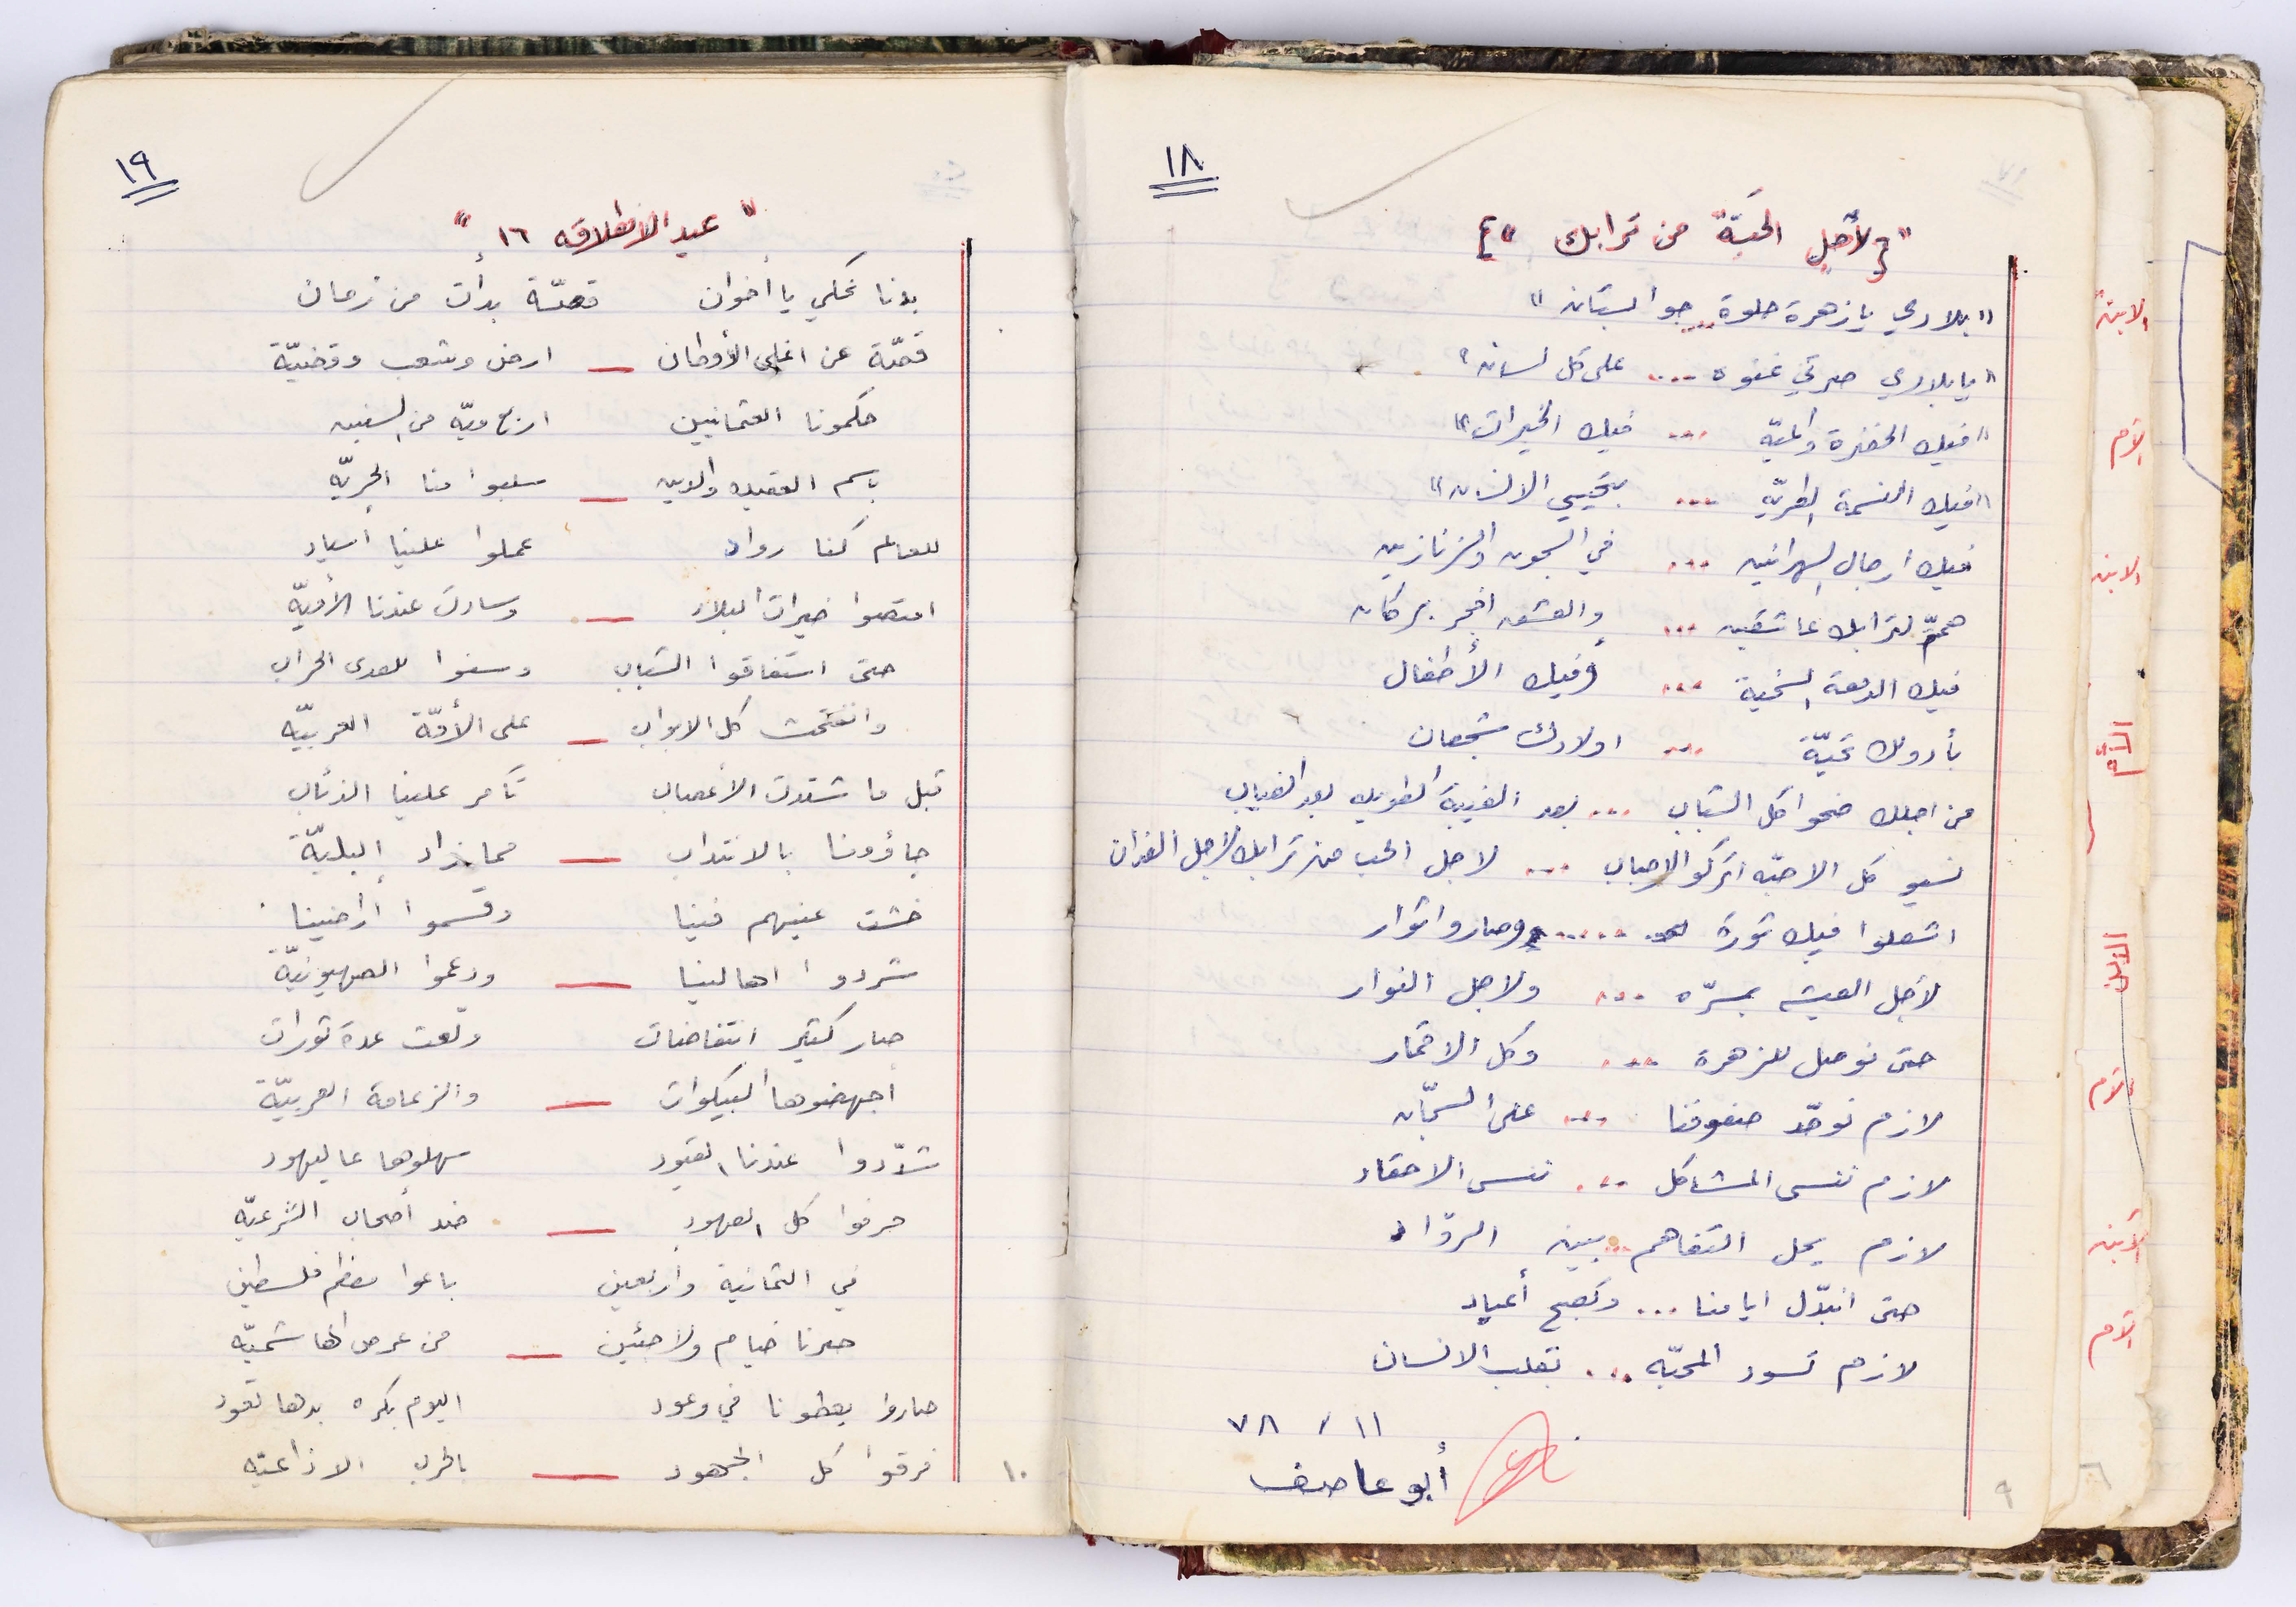 ١٨
"{لأجل الحبّة من ترابك"}
"بلادي يا زهرة حلوة ... جوا البستان"
"يا بلادي صرتي غنوه .... على كل لسان"
"فيك الخضرة والميّه ... فيك الخيرات"
"فيك النسمة الطريّه ... بتحيي الانسان"
فيك ارجال سهرانين ... في السجون والزنازين
همّ لترابك عاشقين ... والعشق افجر بركان
فيك الدمعة السخية ... وفيك الأطفال
بأدولك تحيّة ... اولادك شجعان
من اجلك ضحوا كل الشباب ... بعد الغيبة الطويله بعد الغياب
نسيو كل الاحبّه اتركو الاحباب ... لاجل الحب من ترابك لاجل الغزلان
اشعلوا فيك ثورة ..... وصاروا ثوار
لأجل العيشه بمسرّه .... ولاجل النوار
حتى نوصل للزهرة .... وكل الاقمار
لازم نوحّد صفوفنا .... على السجّان
لازم ننسى المشاكل ... ننسى الاحقاد
لازم يحل التفاهم ... بين الروّاد
حتى انبدّل ايامنا ... وتصبح أعياد
لازم تسود المحبّه ... بقلب الانسان
١١ / ٧٨
أبو عاصف
٩
الابن
الأم
الابن
الأم
الابن
الأم
الابن
الأم
٦
١٩
"عيد الانطلاقه ١٦"
بدنا نحكي يا أخوان قصّة بدأت من زمان
قصّة عن اغلى الأوطان — ارض وشعب وقضيّة
حكمونا العثمانيين اربع ميّه من السنين
باسم العقيده والدين — سلبوا منا الحريّه
للعالم كنا رواد عملوا علينا أسياد
امتصوا خيرات البلاد — وسادت عندنا الأميّه
حتى استفاقوا الشباب وسنوا للعدى الحراب
وانفتحت كل الابواب — على الأمّة العربيّه
قبل ما شتدت الأعصاب تآمر علينا الذئاب
جاؤونا بالانتداب — مما زاد البليّة
خشت عنيهم فينا وقسموا أراضينا
شردوا اهالينا — ودعموا الصهيونيّة
صار كتير انتفاضات ولعت عدة ثورات
أجهضوها البيكوات — والزعامة العربيّة
شدّدوا عندنا القيود سهلوها عاليهود
حرفوا كل العهود — ضد أصحاب الشرعيّه
في الثمانية واربعين باعوا معظم فلسطين
صرنا خيام ولاجئين — من عرص الهاشميّه
صاروا يعطونا في وعود اليوم بكره بدها تعود
فرقوا كل الجهود — بالحرب الاذاعيّه
١٠